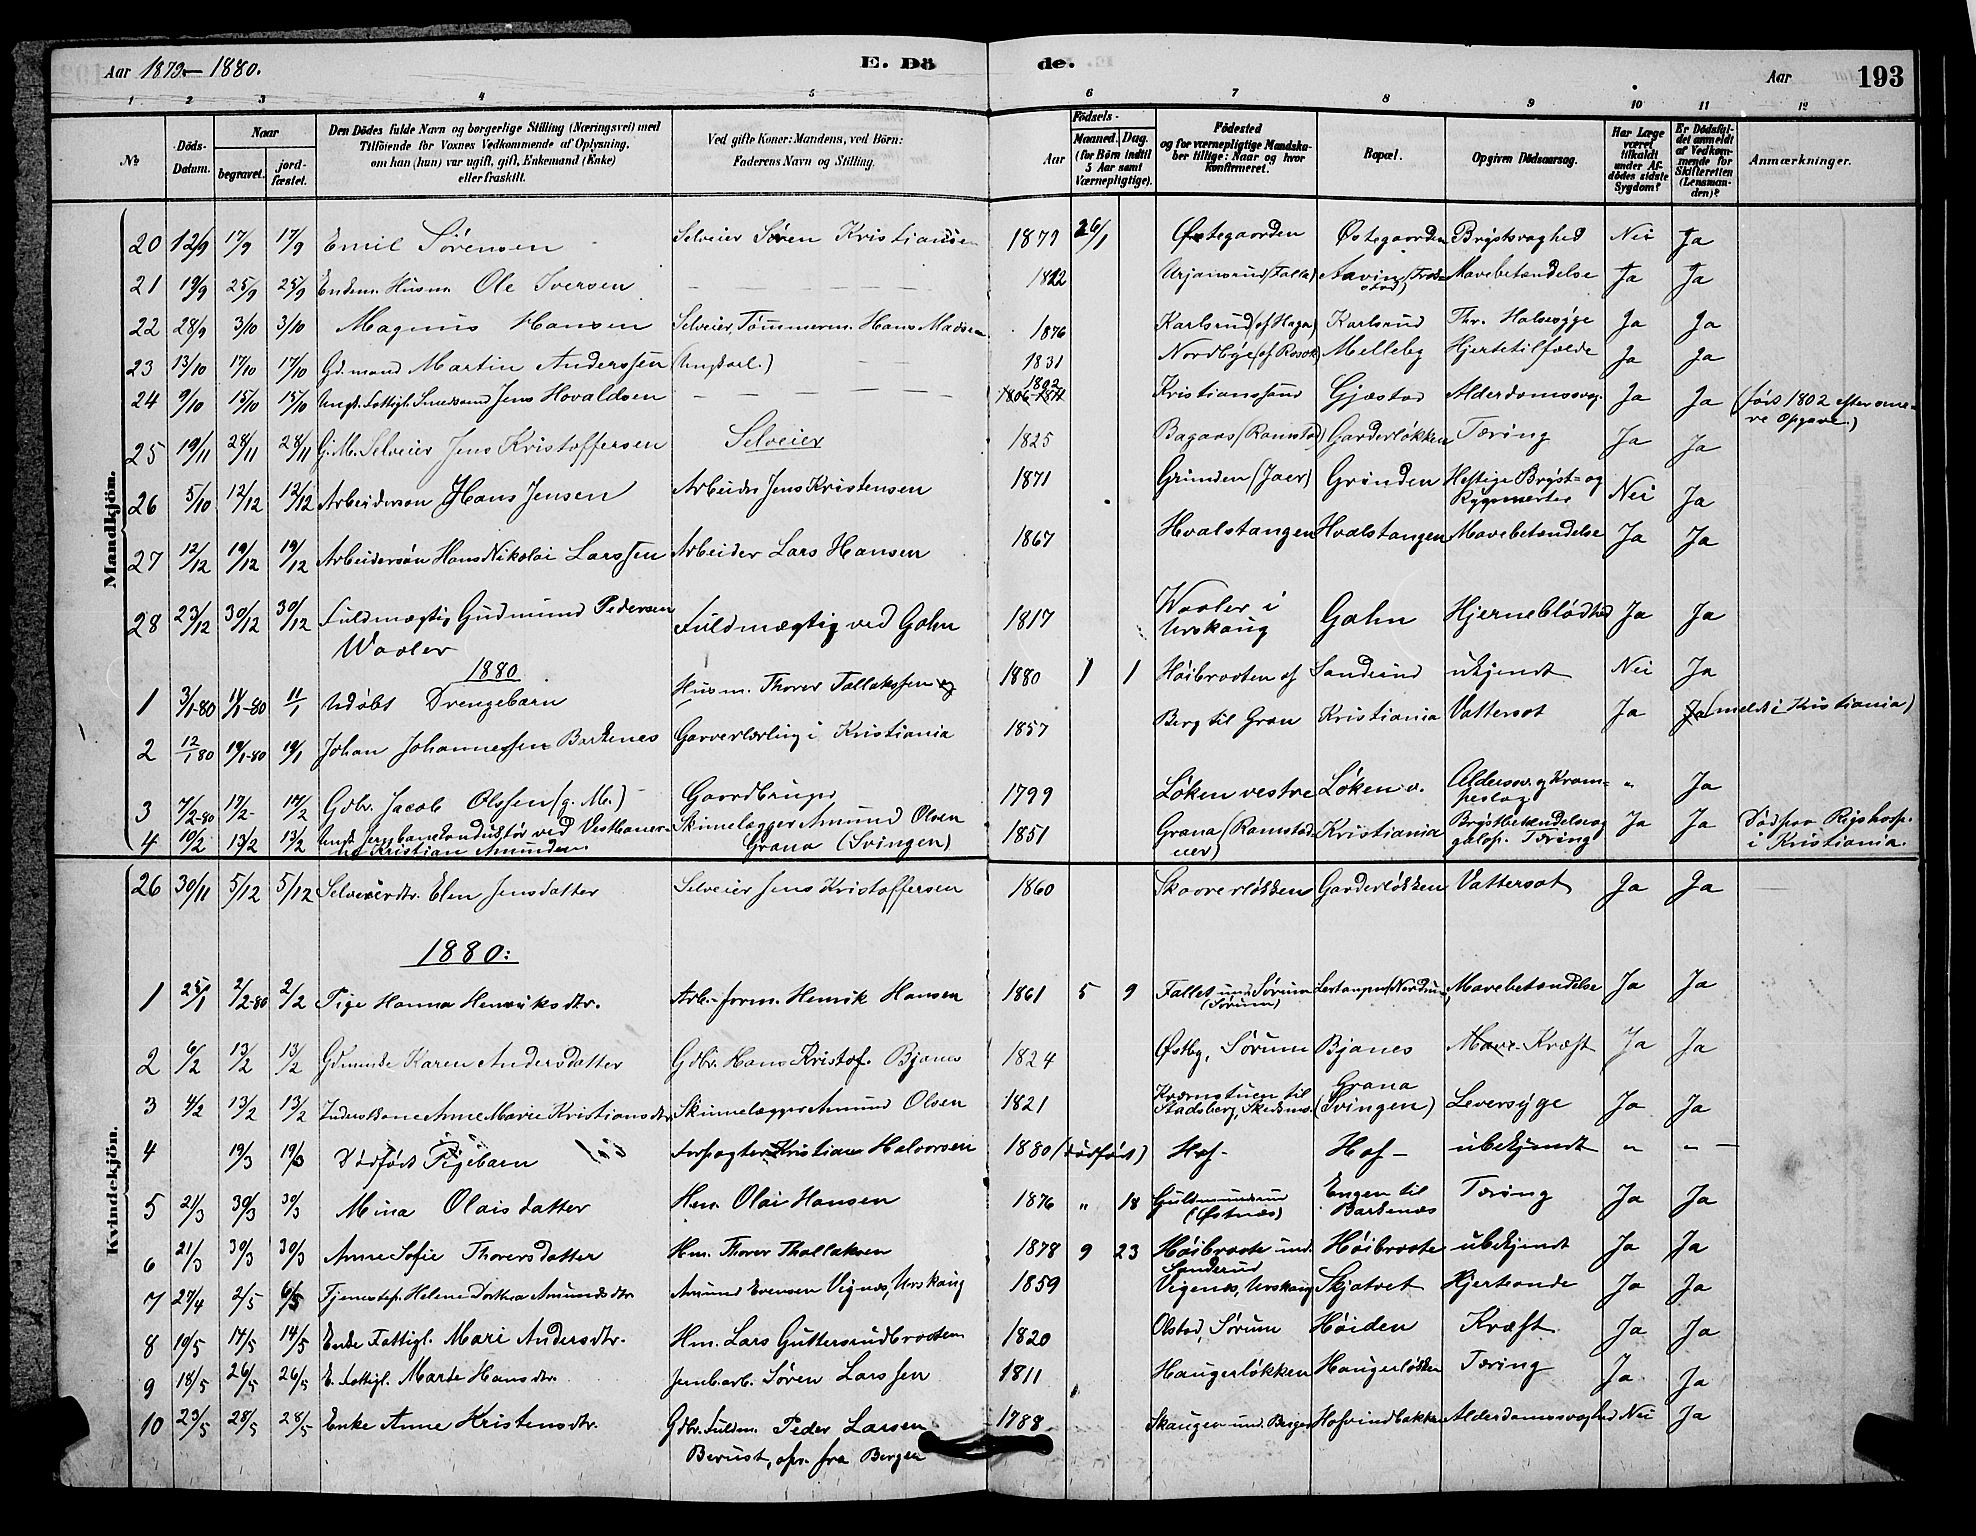 Aar 1879 – 1880. E. Dö de. Aar 193
1 2 3 4 5 6 7 8 9 10 11 12
№ Döds-Datum. Naar begravet. jord-fæstet. Den Dödes fulde Navn og borgerlige Stilling (Næringsvei) med Tilföiende for Voxnes Vedkommende af Oplysning, om han (hun) var ugift, gift, Enkemand (Enke) eller fraskilt. Ved gifte Koner: Mandens, ved Börn: Faderens Navn og Stilling. Födsels- Aar Maaned. Dag. (for Börn indtil 5 Aar samt Værnepligtige). Födested og for værnepligtige Mandskaber tillige: Naar og hvor konfirmeret. Bopæl. Opgiven Dödsaarsag. Har Læge været tilkaldt under Afdödes sidste Sygdom? Er Dödsfaldet anmeldt af Vedkommende for Skifteretten (Lensmanden)? Anmærkninger.
Mandkjön.
20 12/9 17/9 17/9 Emil Sørensen Selveier Søren Kristiansen 1879 26/1 Østegaarden Østegaarden Brystsvaghed Nei Ja
21 19/9 25/9 25/9 Enkem. Husm. Ole Iversen — — — — 1822 Mavebetændelse Ja Ja
22 28/9 3/10 3/10 Magnus Hansen Selveier, Tømmerm. Hans Madsen 1876 Karlsrud (af Haga) Karlsrud Thr. Halssyge Ja Ja
23 13/10 17/10 17/10 Gdmand Martin Anderssen (Ungkarl.) — — 1831 Nordbye Melleby Hjertetilfælde Ja Ja
24 9/10 15/10 15/10 Ungk. Fattigl. Jens Hovaldsen — — — — 1802 Kristianssand Gjæstad Alderdomssvag. Ja Ja (født 1802 efter senere Opgave.)
25 19/11 28/11 28/11 G. M. Selveier Jens Kristoffersen Selveier 1825 Bagaas (Ramstad) Garderløkken Tæring Ja Ja
26 5/10 12/12 12/12 Arbeidersøn Hans Jensen Arbeider Jens Kristensen 1871 Grinden (Jaer) Grinden Heftige Bryst- og Rygsmerter Nei Ja
27 12/12 19/12 19/12 Arbeidersøn Hans Nikolai Larssen Arbeider Lars Hansen 1867 Hvalstangen Hvalstangen Mavebetændelse Ja Ja
28 23/12 30/12 30/12 Fuldmægtig Gudmund Pedersen Waaler Fuldmægtig ved Gahn 1817 Waaler i Urskoug Gahn Hjerneblødhed Ja Ja
1880
1 3/1-80 11/1-80 11/1 Udøbt Drengebarn Husm. Thorer Tollakssen 1880 1 1 Høibraaten af Sanderud ukjendt Nei Ja
2 12/1 80 19/1-80 19/1 Johan Johannessen Barkenes Garverlærling i Kristiania 1857 Berg til Gran Kristiania Vattersot Ja Ja (meldt i Kristiania)
3 7/2-80 17/2- 17/2 Gdbr. Jacob Olssen (g. M.) Gaardbruger 1799 Løken vestre Løken v. Aldersv. og Krampeslag „ Ja
4 10/2 13/2 13/2 Ungk. Jernbanekonduktør ved Vestbanen Kristian Amundsen. Skindlægger Amund Olsen Grana (Svingen) 1851 Grana (Ramstad Kristiania Brystbetændelse og galop. Tæring Ja Ja Død paa Rigshosp. i Kristiania.
Kvindekjön.
26 30/11 5/12 5/12 Selveierdtr. Elen Jensdatter Selveier Jens Kristoffersen 1860 Skovverløkken Garderløkken Vattersot Ja Ja
1880:
1 25/1 2/2-80 2/2 Pige Hanna Henriksdtr. Arb.-form. Henrik Hansen 1861 5 9 Fallet und. Sørum (Sørum) Mavebetændelse Ja Ja
2 6/2 13/2 13/2 Karen Andersdatter Gdbr. Hans Kristof. Bjanes 1824 Østby, Sørum Bjanes Mave-Kræft Ja Ja
3 4/2 13/2 13/2 Anne Marie Kristiansdtr Skindlægger Amund Olsen 1821 Kværnstuen til Stadsberg, Skedsmo Grana (Svingen) Leversyge Ja Ja
4 19/3 19/3 Dødfødt Pigebarn Forpagter Kristian Halvorsen 1880 (dødfødt) Hof- Hof- ubekjendt „ „ –
5 21/3 30/3 30/3 Mina Olaisdatter Hm. Olai Hansen 1876 „ 18 Guldmundsrud (Østnæs) Engen til Barkenæs Tæring Ja Ja
6 21/3 30/3 30/3 Anne Sofie Thorersdatter Hm. Thorer Thollaksen 1878 9 23 Høibraate und. Sanderud Høibraate ubekjendt Ja Ja
7 27/4 2/5 6/5 Tjenestep. Helene Dorthea Amundsdtr. Amund Evensen Vignæs, Urskoug 1859 Vigenæs, Urskoug Skjatvet Hjertonde Ja Ja
8 10/5 14/5 14/5 Enke Fattigl. Mari Andersdtr. Hm. Lars Guttersrudbraaten 1820 Olstad, Sørum Høiden Kræft Ja Ja
9 18/5 26/5 26/5 E. Fattigl. Marte Hansdtr. Jernb.arb. Søren Larssen 1811 Haugerløkken Haugerløkken Tæring Ja Ja
10 23/5 28/5 28/5 Enke Anne Kristensdtr. Gdbr. Fuldm. Peder Larsen 1788 Skaugen und. Berger Hofvindbakken Alderdomssvaghed Nei Ja
Berust, opr. fra Bergen